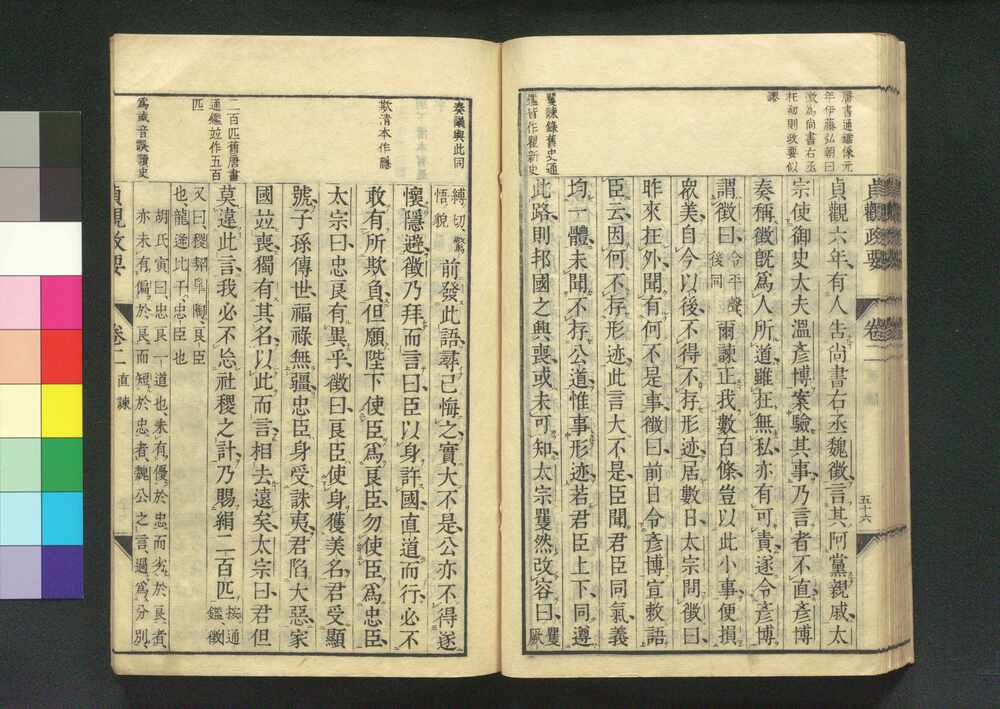 唐書通鑑係元
年伊藤弘朝曰
徵為尚書右丞
在初則政要似
謬
瞿諫錄舊史通
鑑皆作瞿新史
貞觀政要
卷二
五十六
貞觀六年有人告尚書右丞魏徵言其阿黨親戚太
宗使御史大夫溫彥博案驗其事乃言者不直彥博
奏稱徵既爲人所道雖在無私亦有可責遂令彥博
謂徵曰令平聲後同爾諫正我數百條豈以此小事便損
衆美自今以後不得不存形迹居數日太宗問徵曰
昨來在外聞有何不是事徵曰前日令彥博宣敕語
臣云因何不存形迹此言大不是臣聞君臣同氣義
均一體未聞不存公道惟事形迹若君臣上下同遵
此路則邦國之興喪或未可知太宗瞿然改容曰瞿厥
奏議與此同
欺清本作隱
二百匹舊唐書
通鑑竝作五百
匹
爲歲音誤讀史
縛切驚悟貌前發此語尋已悔之實大不是公亦不得遂
懷隱避徵乃拜而言曰臣以身許國直道而行必不
敢有所欺負但願陛下使臣爲良臣勿使臣爲忠臣
太宗曰忠良有異乎徵曰良臣使身獲美名君受顯
號子孫傳世福祿無疆忠臣身受誅夷君陷大惡家
國竝喪獨有其名以此而言相去遠矣太宗曰君但
莫違此言我必不忘社稷之計乃賜絹二百匹按通鑑徵
又曰稷契皋陶良臣
也龍逄比干忠臣也
胡氏寅曰忠良一道也未有優於忠而劣於良者
亦未有偏於良而短於忠者魏公之言過爲分別
貞觀政要
卷二
直諫